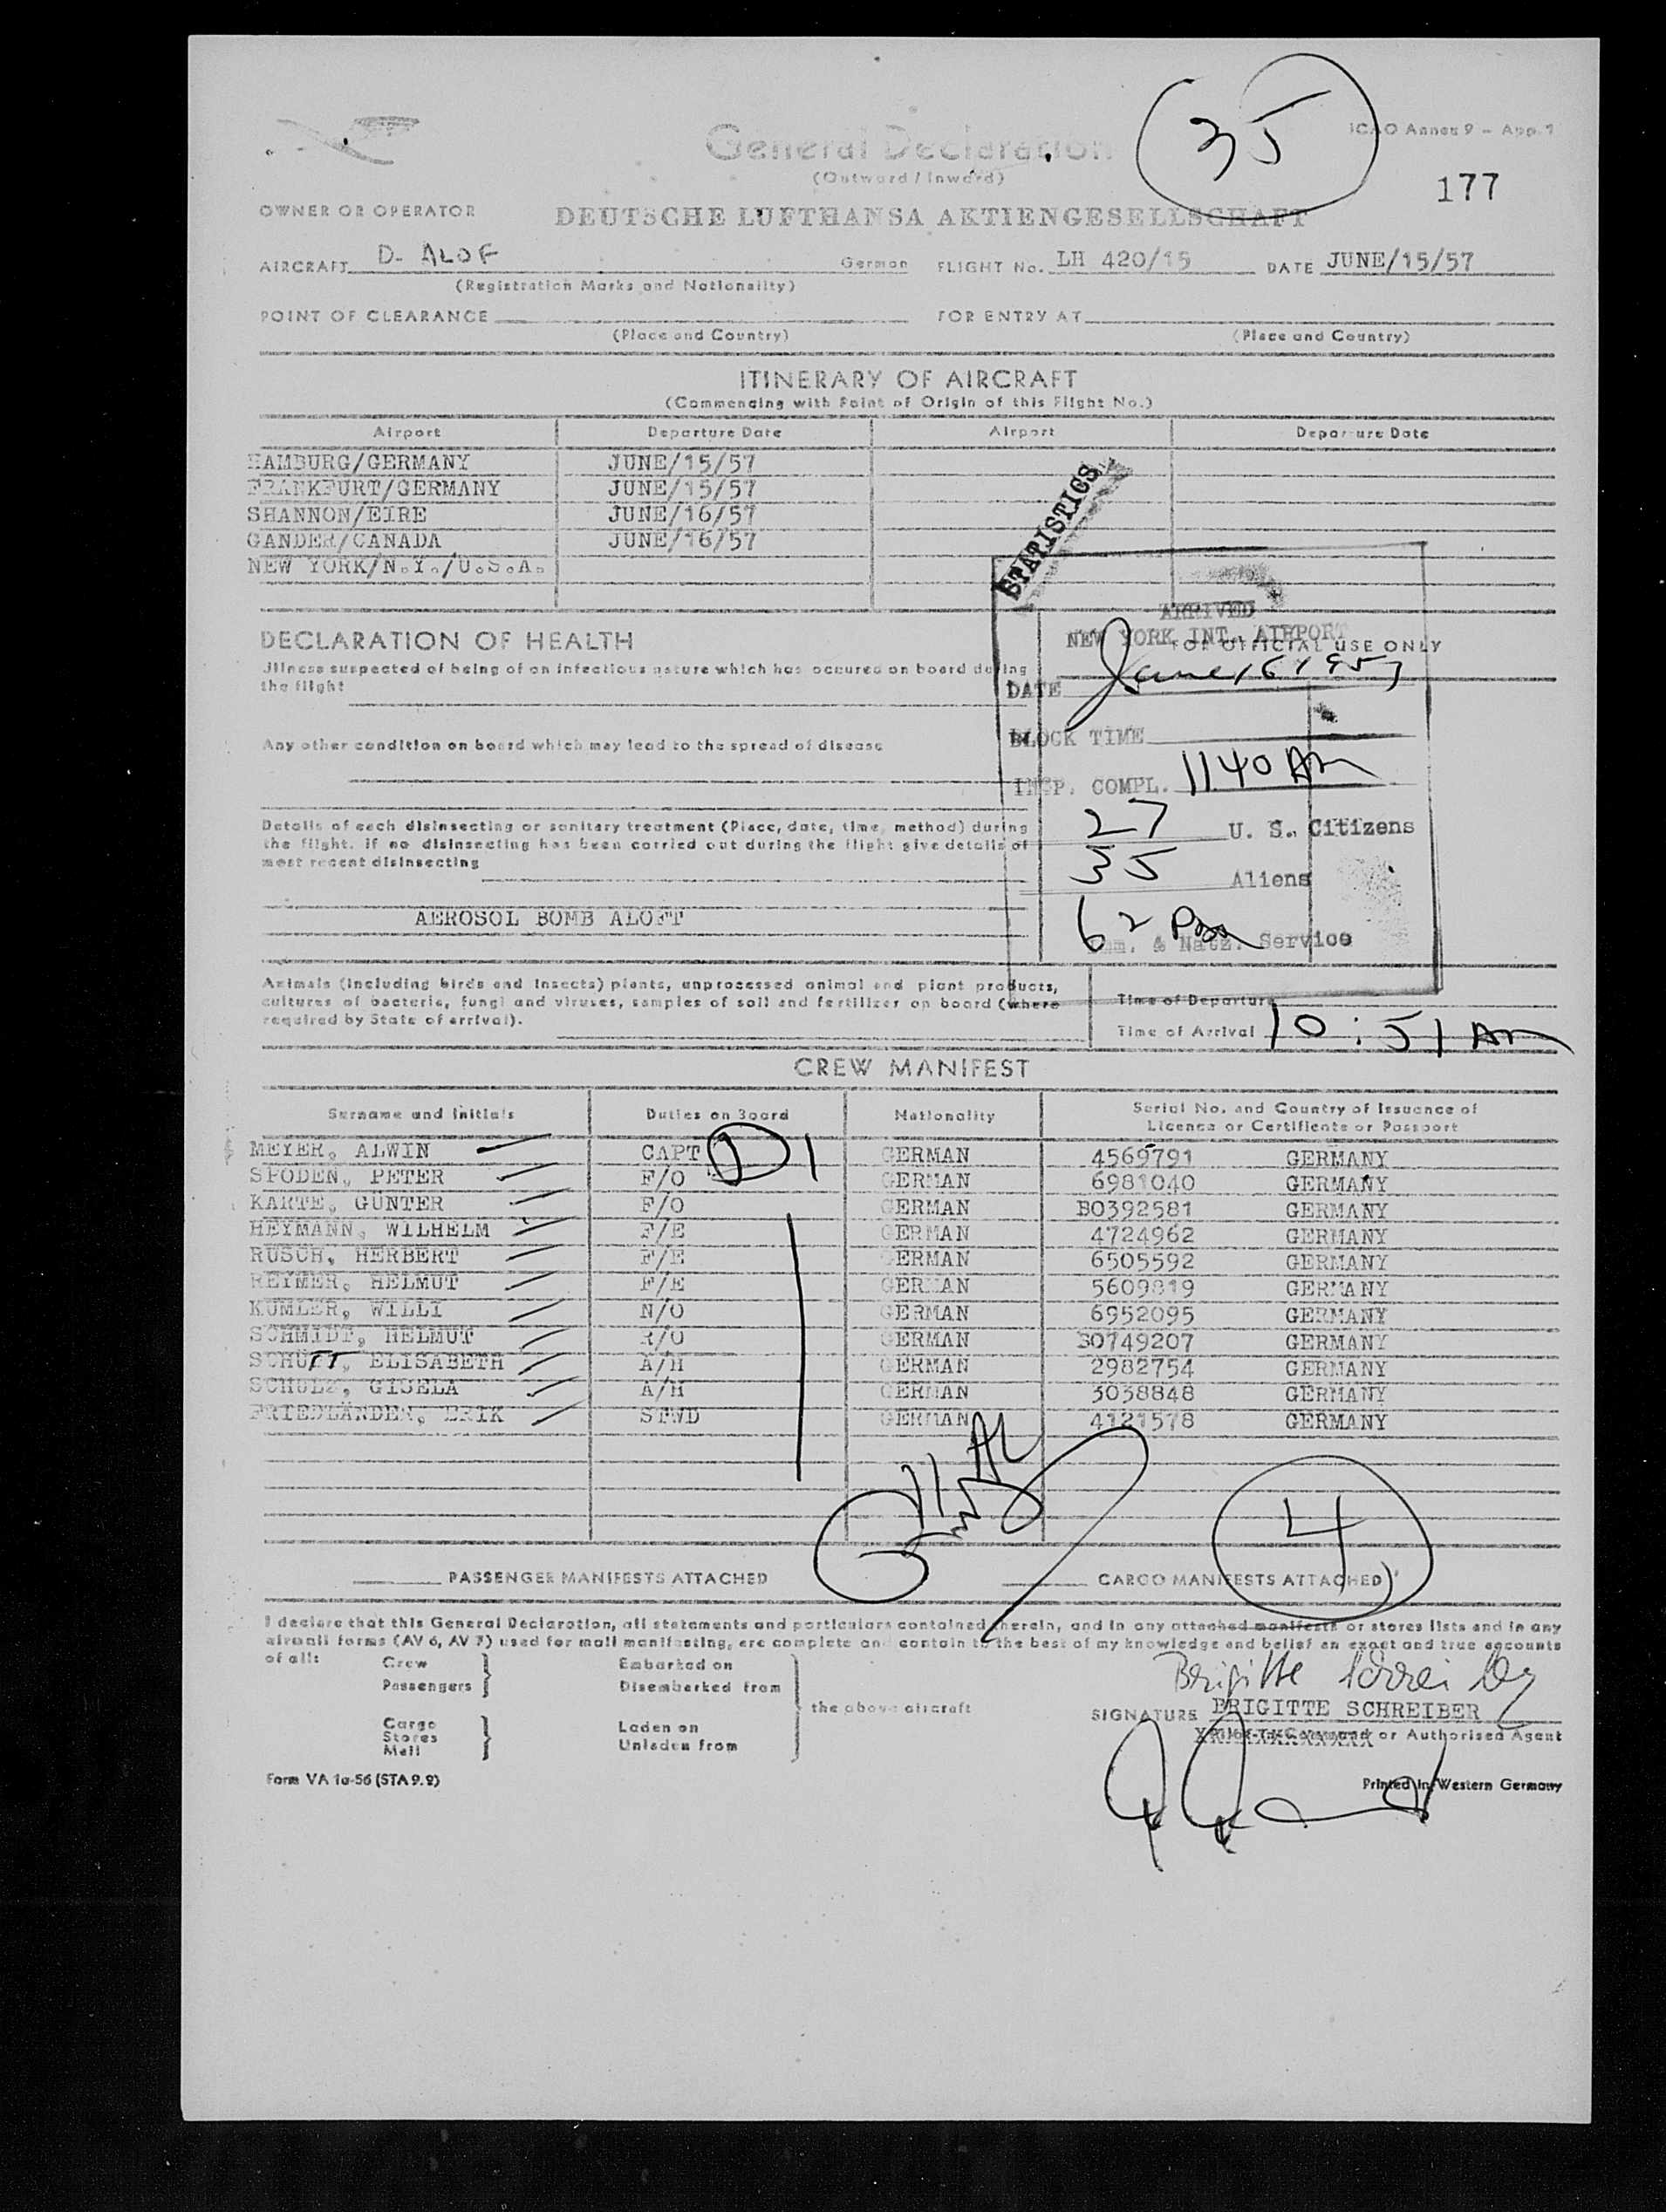 35
General Declaration
(Outward / Inward)
ICAO Annex 9 – App. 1
177
OWNER OR OPERATOR DEUTSCHE LUFTHANSA AKTIENGESELLSCHAFT
AIRCRAFT D- ALOF German FLIGHT No. LH 420/15 DATE JUNE/15/57
(Registration Marks and Nationality)
POINT OF CLEARANCE FOR ENTRY AT
(Place and Country) (Place and Country)
ITINERARY OF AIRCRAFT
(Commencing with Point of Origin of this Flight No.)
Airport Departure Date Airport Departure Date
HAMBURG/GERMANY JUNE/15/57
FRANKFURT/GERMANY JUNE/15/57
SHANNON/EIRE JUNE/16/57
GANDER/CANADA JUNE/16/57
NEW YORK/N.Y./U.S.A.
STATISTICS
ARRIVED
NEW YORK INT. AIRPORT
FOR OFFICIAL USE ONLY
DATE June 16 1957
BLOCK TIME
INSP. COMPL. 1140 AM
27 U. S. Citizens
35 Aliens
62 Pass
Imm. & Natz. Service
DECLARATION OF HEALTH
Illness suspected of being of an infectious nature which has occured on board during
the flight
Any other condition on board which may lead to the spread of disease
Details of each disinsecting or sanitary treatment (Place, date, time, method) during
the flight. If no disinsecting has been carried out during the flight give details of
most recent disinsecting
AEROSOL BOMB ALOFT
Animals (including birds and insects) plants, unprocessed animal and plant products,
cultures of bacteria, fungi and viruses, samples of soil and fertilizer on board (where
required by State of arrival).
Time of Departure
Time of Arrival 10:51 AM
CREW MANIFEST
Surname and Initials Duties on Board Nationality Serial No. and Country of Issuance of
Licence or Certificate or Passport
MEYER, ALWIN CAPT D1 GERMAN 4569791 GERMANY
SPODEN, PETER F/O GERMAN 6981040 GERMANY
KARTE, GUNTER F/O GERMAN B0392581 GERMANY
HEYMANN, WILHELM F/E GERMAN 4724962 GERMANY
RUSCH, HERBERT F/E GERMAN 6505592 GERMANY
REYMER, HELMUT F/E GERMAN 5609819 GERMANY
KUMLER, WILLI N/O GERMAN 6952095 GERMANY
SCHMIDT, HELMUT R/O GERMAN B0749207 GERMANY
SCHUTT, ELISABETH A/H GERMAN 2982754 GERMANY
SCHULZ, GISELA A/H GERMAN 3038848 GERMANY
FRIEDLÄNDER, ERIK STWD GERMAN 4121578 GERMANY
4
PASSENGER MANIFESTS ATTACHED CARGO MANIFESTS ATTACHED
I declare that this General Declaration, all statements and particulars contained therein, and in any attached manifests or stores lists and in any
airmail forms (AV 6, AV 7) used for mail manifesting, are complete and contain to the best of my knowledge and belief an exact and true accounts
of all:
Crew Embarked on
Passengers Disembarked from
the above aircraft
Cargo Laden on
Stores
Mail Unladen from
Brigitte Schreiber
SIGNATURE BRIGITTE SCHREIBER
Pilot-In-Command or Authorised Agent
Form VA 1a-56 (STA 9.2)
Printed in Western Germany